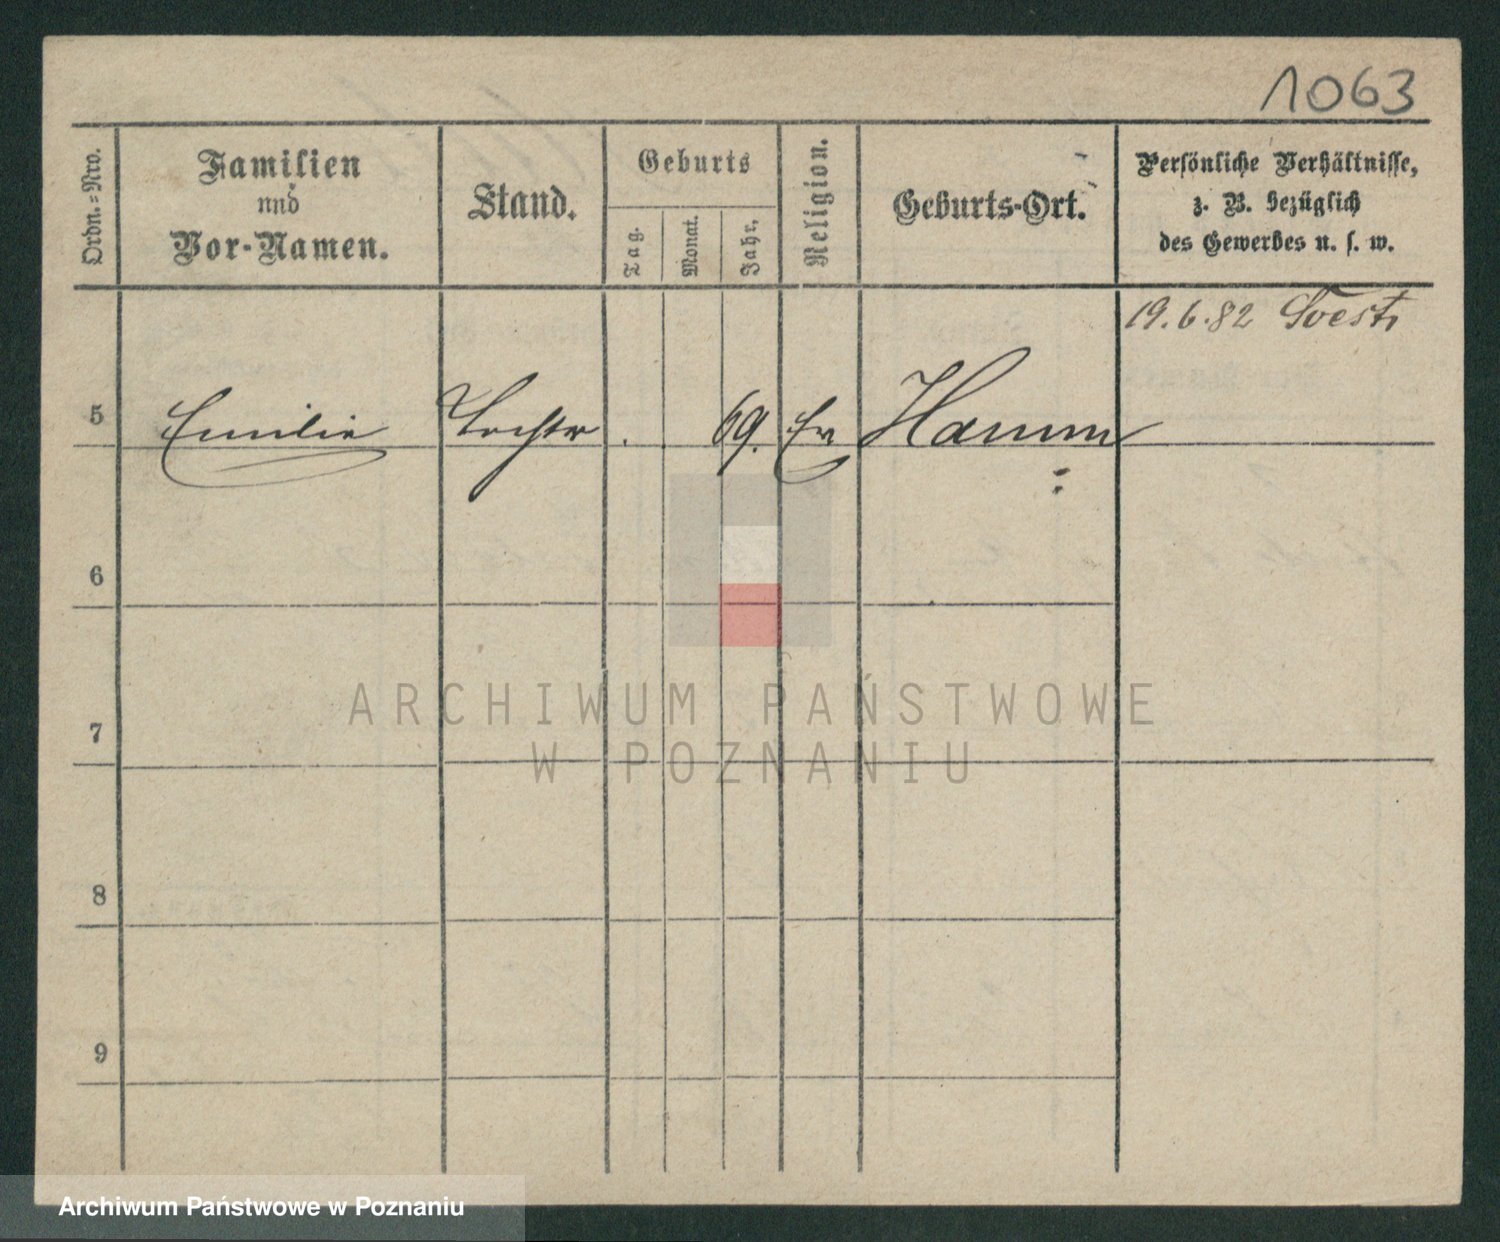 1063
Ordn.=Nro.
Familien
und
Vor-Namen.
Stand.
Geburts
Tag.
Monat.
Jahr.
Religion.
Geburts-Ort.
Persönliche Verhältnisse,
z. B. bezüglich
des Gewerbes u. s. w.
19.6.82 Soest
5 Emilie Tochter 69. Ev Hamm
6
7
8
9
ARCHIWUM PAŃSTWOWE
W POZNANIU
Archiwum Państwowe w Poznaniu